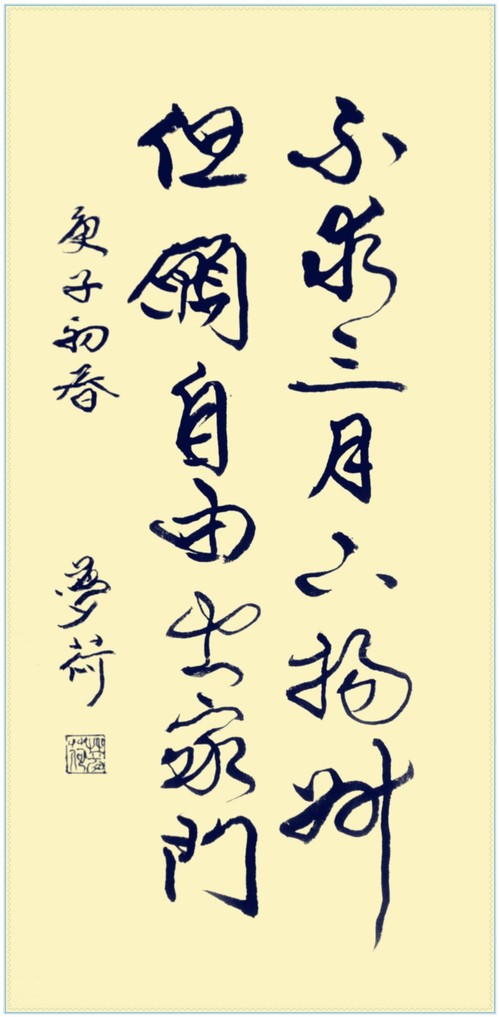 不求三月下揚州
但願自由出家門
庚子初春 夢荷